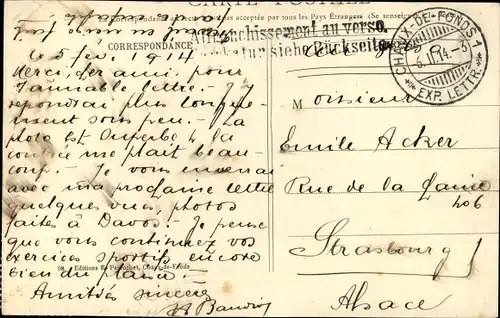 CARTE POSTALE
Correspondance pas acceptée par tous les Pays Étrangers (Se renseigner
CORRESPONDANCE
Affranchissement au verso.
Frankatur siehe Rückseite
CHAUX-DE-FONDS 1
5.II.14.-5
* EXP. LETTR. *
le 5 fév. 1914
Merci, cher ami, pour
l'aimable lettre. Je
répondrai plus longue-
ment sous peu. La
photo est superbe & la
contrée me plaît beau-
coup. Je vous enverrai
avec ma prochaine lettre
quelques vues, photos
faites à Davos. Je pense
que vous continuez vos
exercices sportifs encore
bien du plaisir.
Amitiés sincères
Monsieur
Emile Acker
Rue de la Laine
Strasbourg
Alsace
Editions Chaux-de-Fonds